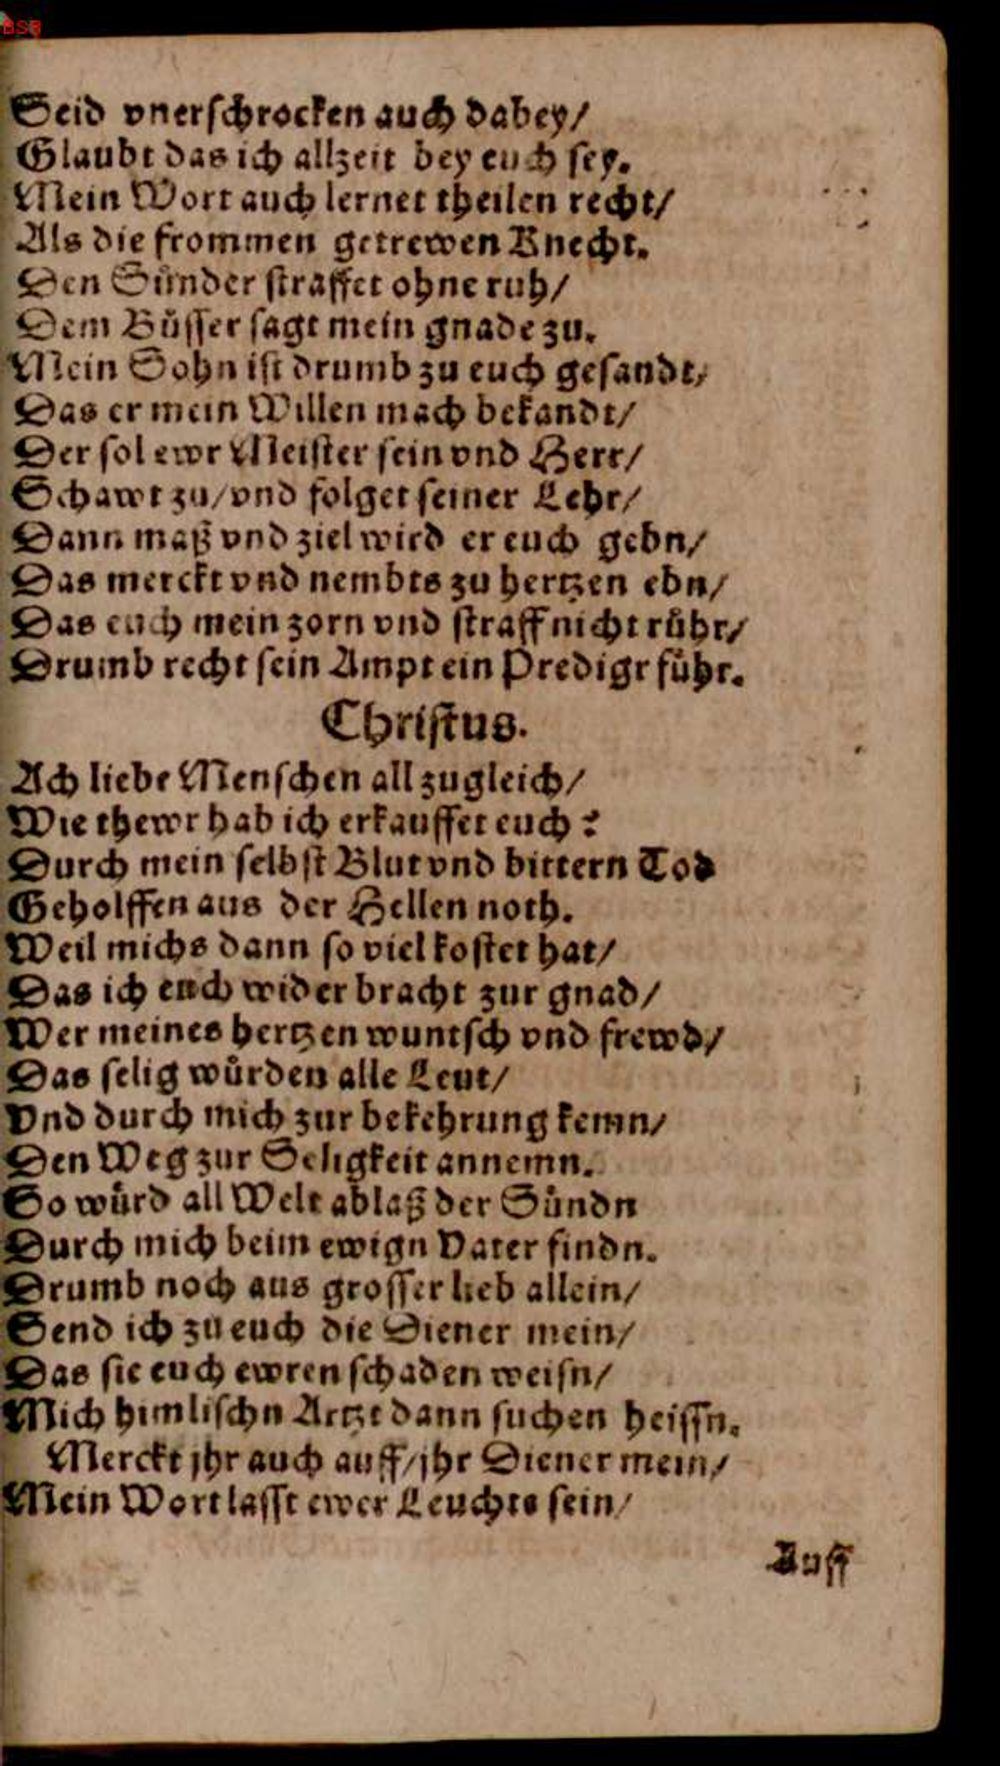 BSB
Seid vnerschrocken auch dabey/
Glaubt das ich allzeit bey euch sey.
Mein Wort auch lernet theilen recht/
Als die frommen getrewen Knecht.
Den Sünder straffet ohne ruh/
Dem Büsser sagt mein gnade zu.
Mein Sohn ist drumb zu euch gesandt/
Das er mein Willen mach bekandt/
Der sol ewr Meister sein vnd Herr/
Schawt zu/vnd folget seiner Lehr/
Dann maß vnd ziel wird er euch gebn/
Das merckt vnd nembts zu hertzen ebn/
Das euch mein zorn vnd straff nicht rühr/
Drumb recht sein Ampt ein Predigr führ.
Christus.
Ach liebe Menschen all zugleich/
Wie thewr hab ich erkauffet euch?
Durch mein selbst Blut vnd bittern Tod
Geholffen aus der Hellen noth.
Weil michs dann so viel kostet hat/
Das ich euch wider bracht zur gnad/
Wer meines hertzen wuntsch vnd frewd/
Das selig würden alle Leut/
Vnd durch mich zur bekehrung kemn/
Den Weg zur Seligkeit annemn.
So würd all Welt ablaß der Sündn
Durch mich beim ewign Vater findn.
Drumb noch aus grosser lieb allein/
Send ich zu euch die Diener mein/
Das sie euch ewren schaden weisn/
Mich himlischn Artzt dann suchen heissn.
Merckt jhr auch auff/jhr Diener mein/
Mein Wort lasst ewer Leuchte sein/
Auff